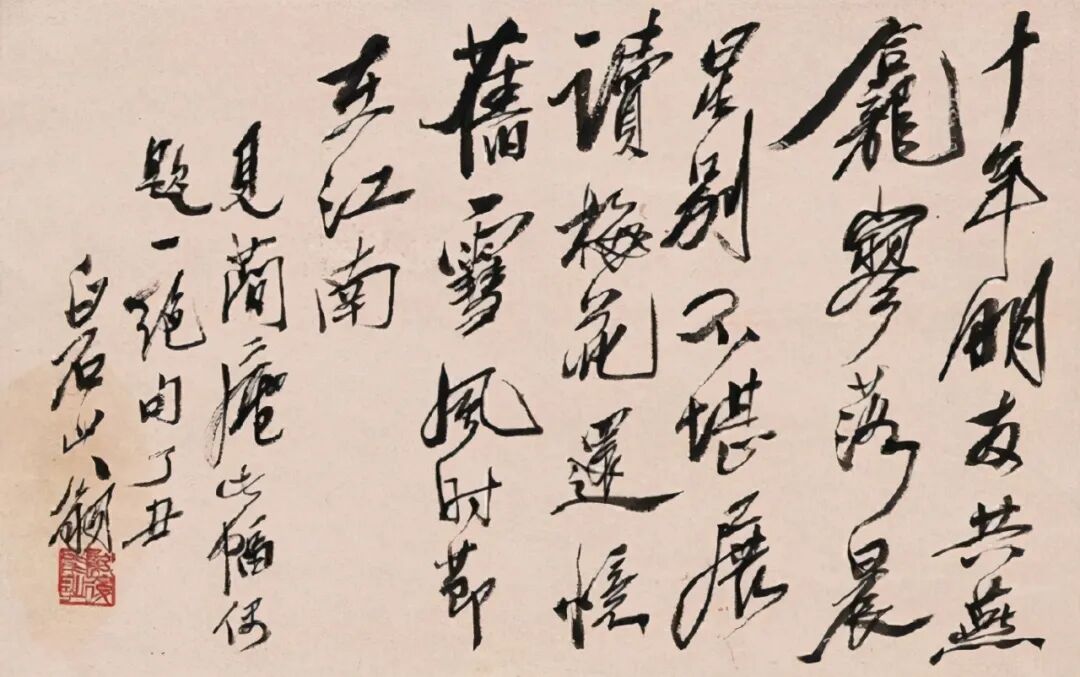 十年朋友共燕
龕寥落晨
星别不堪展
讀梅花還憶
舊雪風时節
在江南
見蕑庵此幅偶
題一絕句丁丑
白石山翁